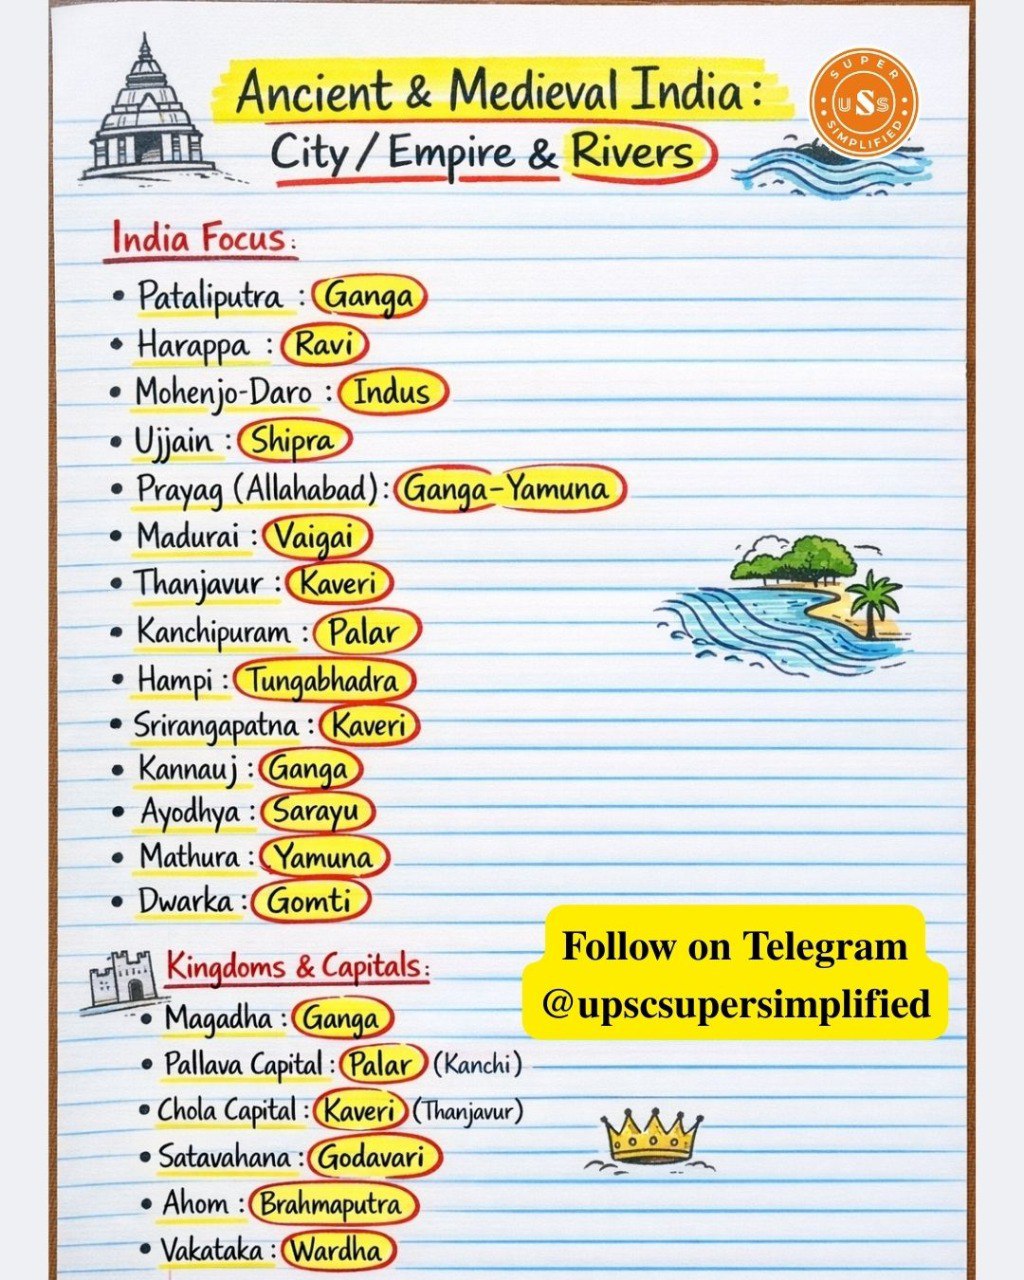 Ancient & Medieval India:
City / Empire & Rivers
SUPER
USS
SIMPLIFIED
India Focus:
• Pataliputra : Ganga
• Harappa : Ravi
• Mohenjo-Daro : Indus
• Ujjain : Shipra
• Prayag (Allahabad): Ganga-Yamuna
• Madurai : Vaigai
• Thanjavur : Kaveri
• Kanchipuram : Palar
• Hampi : Tungabhadra
• Srirangapatna : Kaveri
• Kannauj : Ganga
• Ayodhya : Sarayu
• Mathura : Yamuna
• Dwarka : Gomti
Follow on Telegram
@upscsupersimplified
Kingdoms & Capitals:
• Magadha : Ganga
• Pallava Capital : Palar (Kanchi)
• Chola Capital : Kaveri (Thanjavur)
• Satavahana : Godavari
• Ahom : Brahmaputra
• Vakataka : Wardha